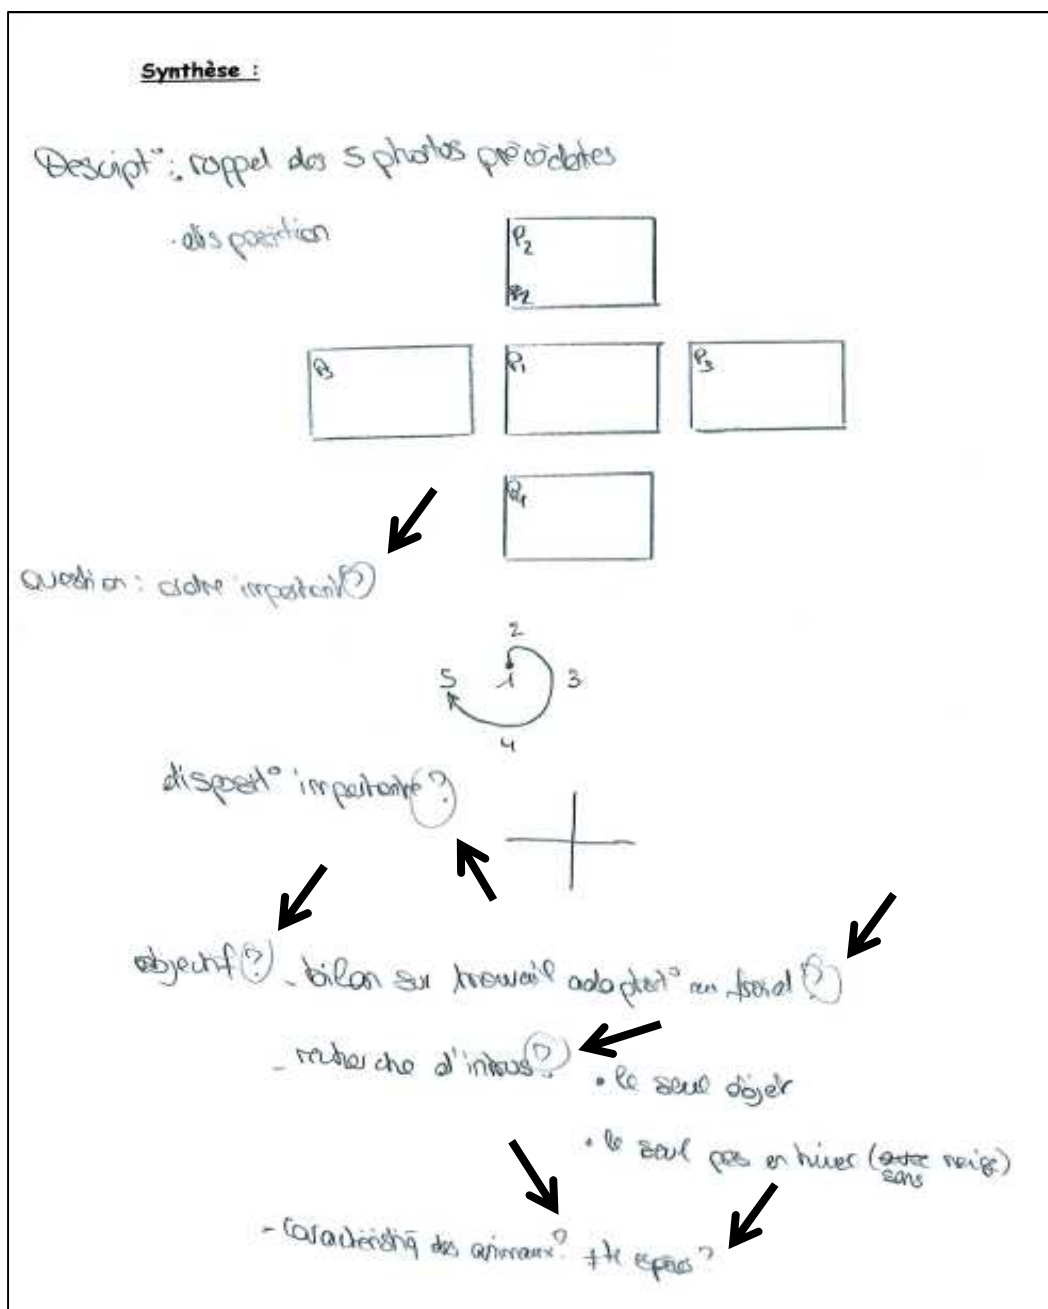 Synthèse :
Descipt° : rappel des 5 photos précédates
. disposition
P2
P2
P5 P1 P3
P4
question : ordre important ?
2
5 1 3
4
disposit° importante ?
objectif ? - bilan sur travail adaptat° au froid ?
- recherche d'intrus ? • le seul objet
• le seul pas en hiver (sans neige)
- caractéristiq des animaux ? + espèces ?